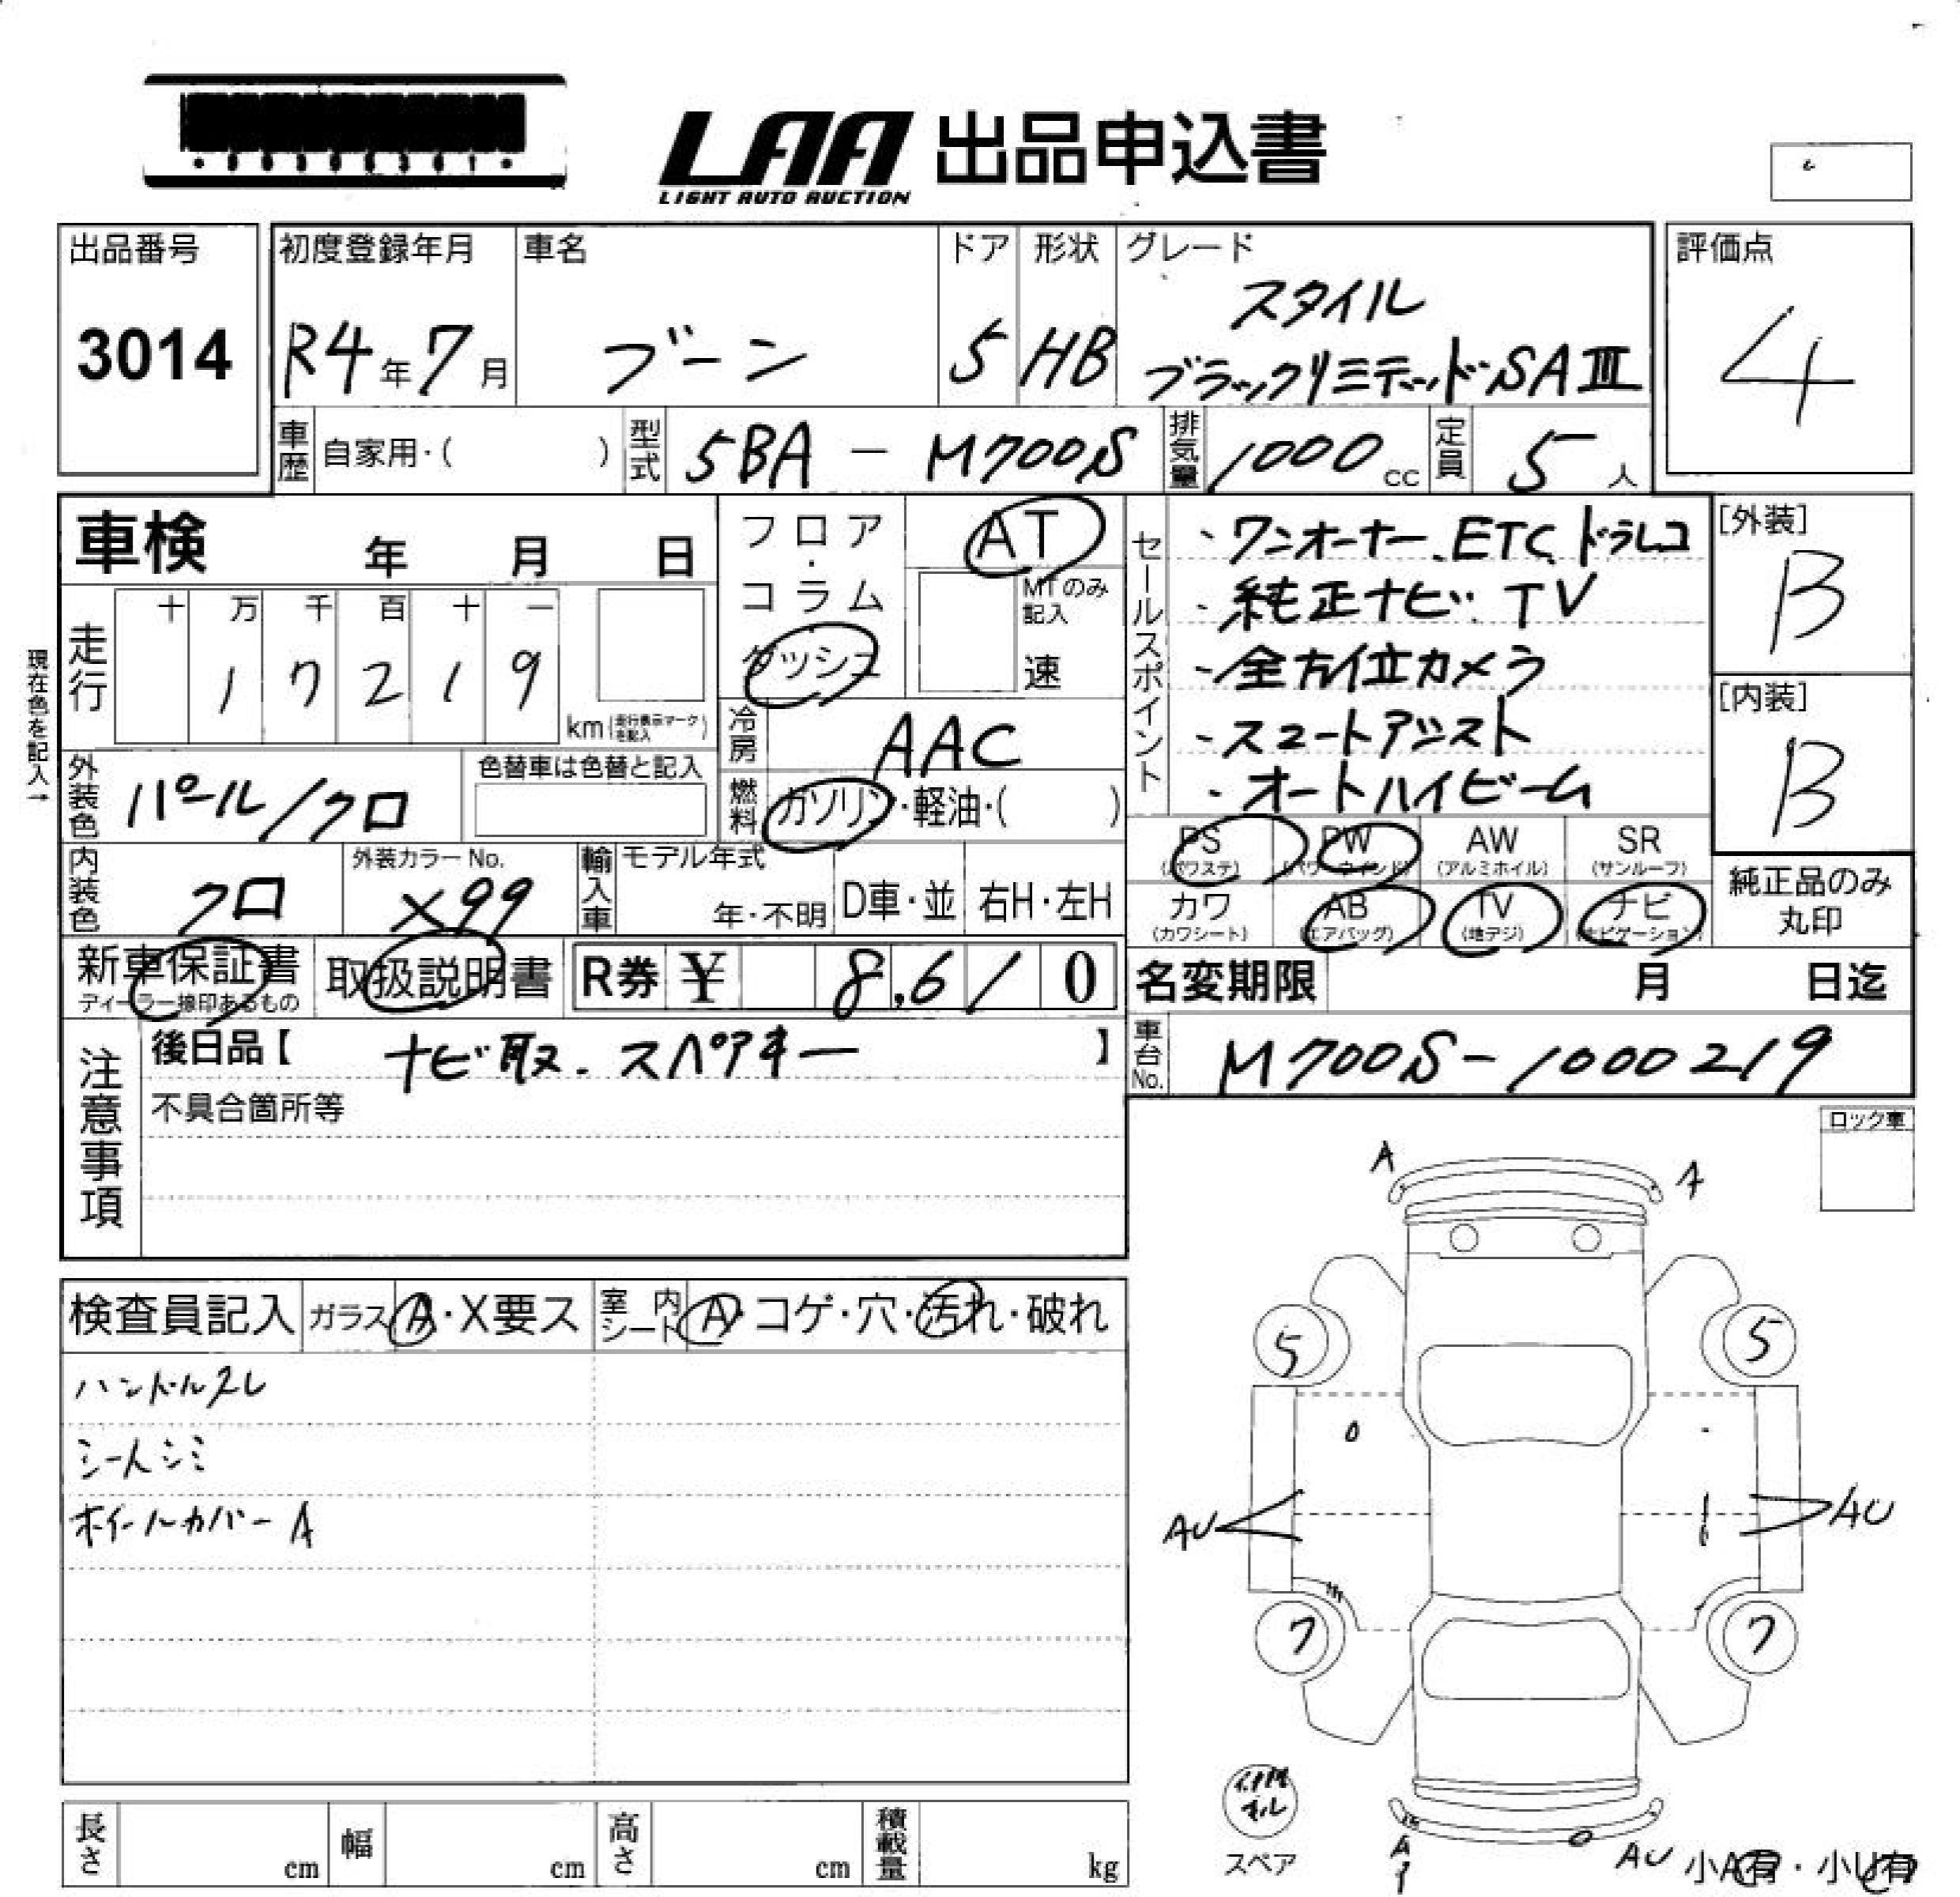 LAA 出品申込書
LIGHT AUTO AUCTION
出品番号
3014
初度登録年月
R4年7月
車名
ブーン
ドア
5
形状
HB
グレード
スタイル
ブラックリミテッド・SAⅢ
評価点
4
車歴
自家用・( )
型式
5BA - M700S
排気量
1000cc
定員
5人
車検 年 月 日
フロア・コラム
ダッシュ
AT
MTのみ記入
速
セールスポイント
・ワンオーナー、ETC、ドラレコ
・純正ナビ・TV
・全方位カメラ
・スマートアシスト
・オートハイビーム
[外装]
B
[内装]
B
現在色を記入→
走行
十 万 千 百 十 一
1 7 2 1 9
km (走行表示マークを記入)
冷房
AAC
外装色
パール/クロ
色替車は色替と記入
燃料
ガソリン・軽油・( )
PS (パワステ)
PW (パワーウインド)
AW (アルミホイル)
SR (サンルーフ)
カワ (カワシート)
AB (エアバッグ)
TV (地デジ)
ナビ (ナビゲーション)
純正品のみ丸印
内装色
クロ
外装カラーNo.
X99
輸入車
モデル年式
年・不明
D車・並
右H・左H
新車保証書
ディーラー捺印あるもの
取扱説明書
R券 ¥ 8,610
名変期限 月 日迄
注意事項
後日品【 ナビ取、スペアキー 】
不具合箇所等
車台No.
M700S-1000219
ロック車
検査員記入
ガラス A・X要ス
室内シート A・コゲ・穴・汚れ・破れ
ハンドルスレ
シートシミ
ホイールカバーA
A
A
5
5
AU
AU
7
7
スペア
A
AU
小A有・小U有
長さ cm
幅 cm
高さ cm
積載量 kg